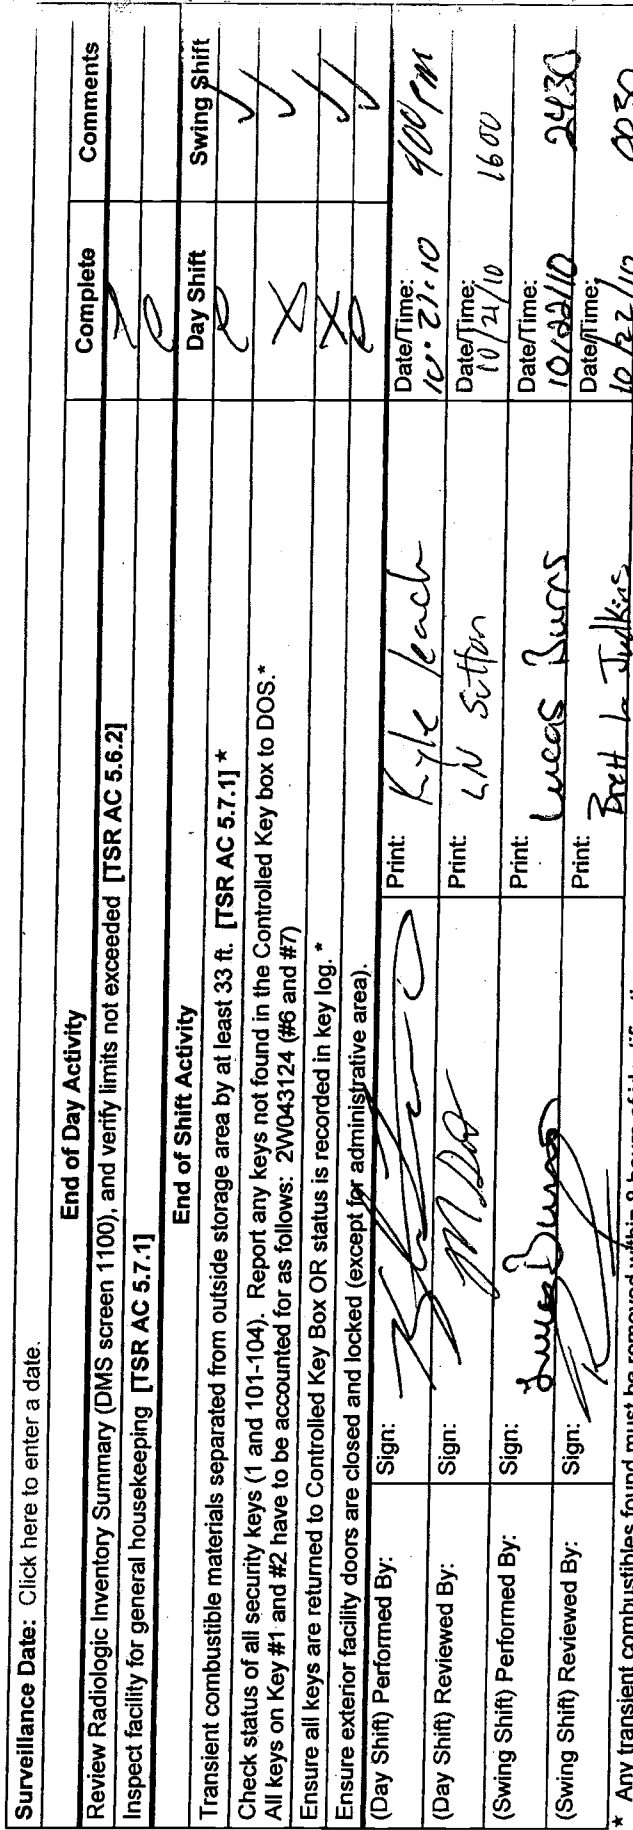 Surveillance Date: Click here to enter a date.
End of Day Activity Complete Comments
Review Radiologic Inventory Summary (DMS screen 1100), and verify limits not exceeded [TSR AC 5.6.2]
Inspect facility for general housekeeping [TSR AC 5.7.1]
End of Shift Activity Day Shift Swing Shift
Transient combustible materials separated from outside storage area by at least 33 ft. [TSR AC 5.7.1] * ✓
Check status of all security keys (1 and 101-104). Report any keys not found in the Controlled Key box to DOS.*
All keys on Key #1 and #2 have to be accounted for as follows: 2W043124 (#6 and #7) X ✓
Ensure all keys are returned to Controlled Key Box OR status is recorded in key log. * X ✓
Ensure exterior facility doors are closed and locked (except for administrative area). ✓
(Day Shift) Performed By: Sign: Print: Kyle Leach Date/Time: 10.21.10 400 PM
(Day Shift) Reviewed By: Sign: Print: LN Sutton Date/Time: 10/21/10 1600
(Swing Shift) Performed By: Sign: Lucas Burns Print: Lucas Burns Date/Time: 10/22/10 2430
(Swing Shift) Reviewed By: Sign: Print: Brett L Judkins Date/Time: 10/22/10 0030
* Any transient combustibles found must be removed within 8 hours of